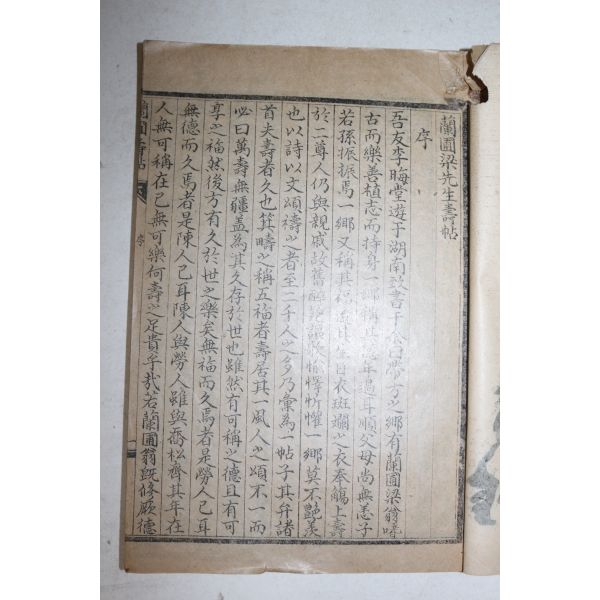 蘭圃梁先生壽帖
序
吾友李晦堂遊于湖南致書于余曰帶方之鄉有蘭圃梁翁嗜
古而樂善植志而持身一鄉稱其德年過耳順父母尚無恙子
若孫振振焉一鄉又稱其福日衣斑斕之衣奉觴上壽
於二尊人仍與親戚故舊醉飽讌飮愉懌忻懽一鄉莫不艶羨
也以詩以文頌禱之者至二千人之多乃彙為一帖子其弁諸
首夫壽者久也箕疇之稱五福者壽居其一風人之頌不一而
必曰萬壽無疆盖為其久存於世也雖然有可稱之德且有可
享之福然後方有久於世之樂矣無福而久焉者是勞人已耳
無德而久焉者是陳人已耳陳人與勞人雖與喬松齊其年在
人無可稱在已無可樂何壽之足貴乎哉若蘭圃翁旣修厥德
蘭圃壽帖
序
一